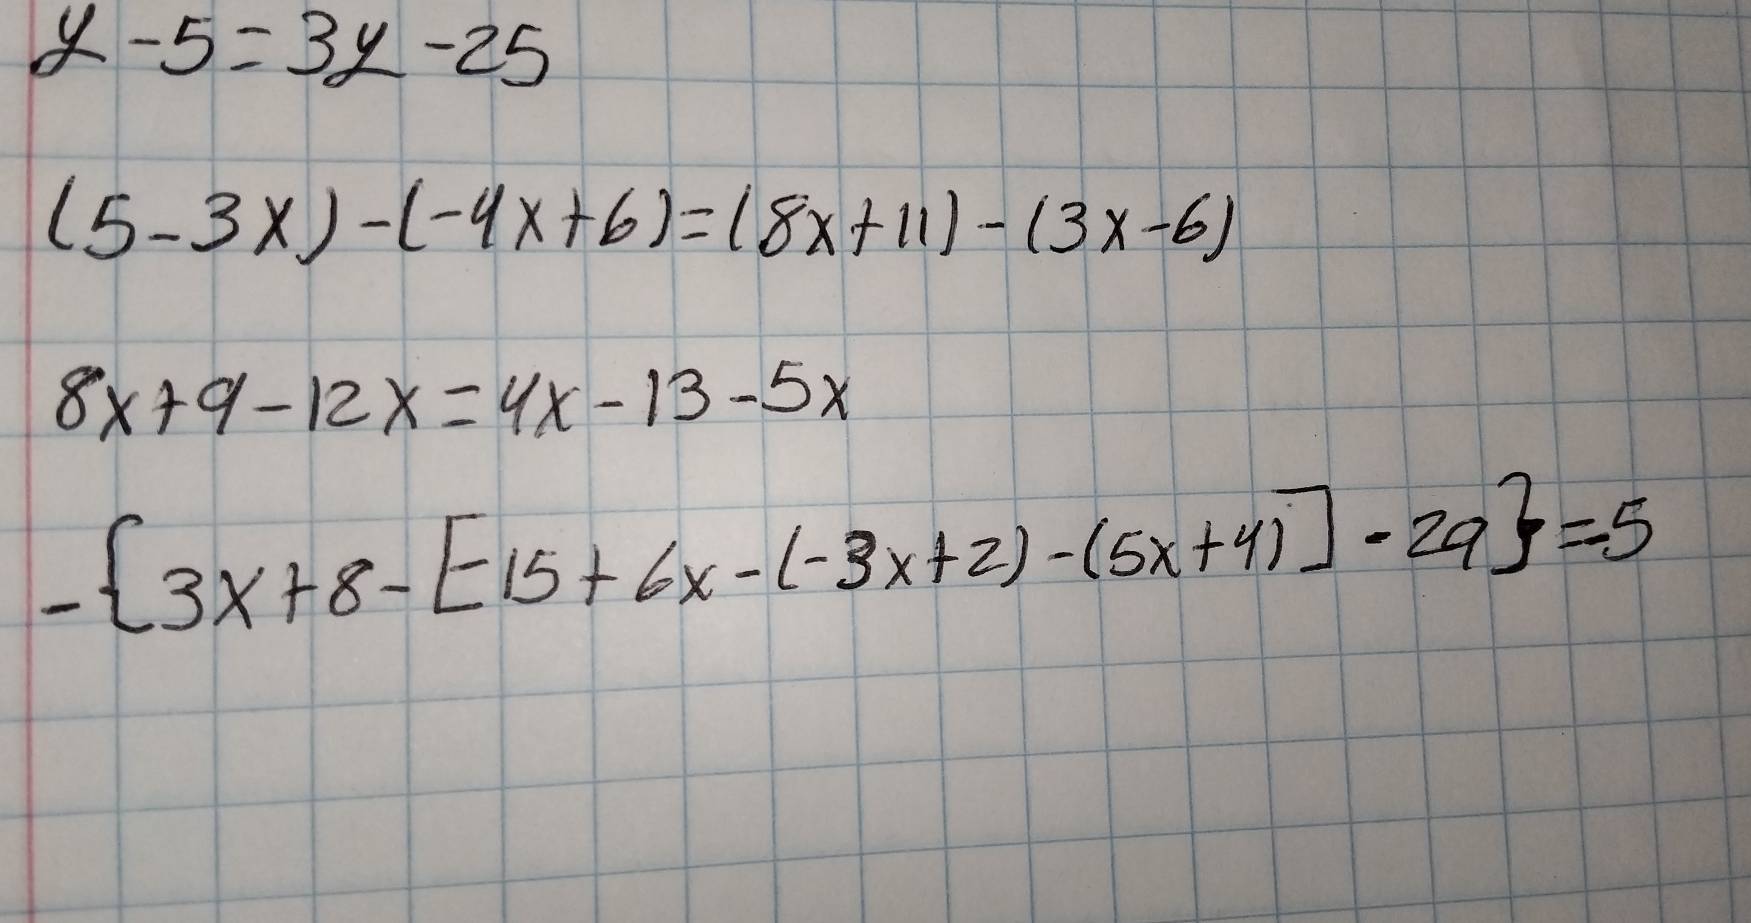 y - 5 = 3y - 25
(5 - 3x) - (-4x + 6) = (8x + 11) - (3x - 6)
8x + 9 - 12x = 4x - 13 - 5x
- {3x + 8 - [-15 + 6x - (-3x + 2) - (5x + 4)] - 29} = -5